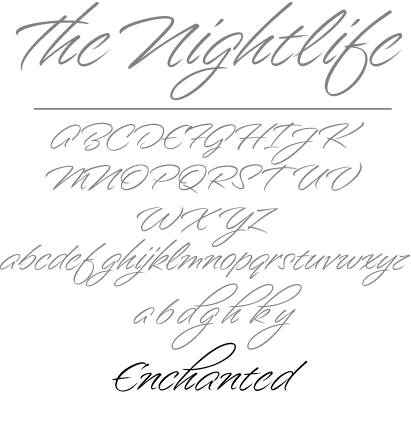 The Nightlife
ABCDEFGHIJK
MNOPQRSTUV
WXYZ
abcdefghijklmnopqrstuvwxyz
abdghky
Enchanted